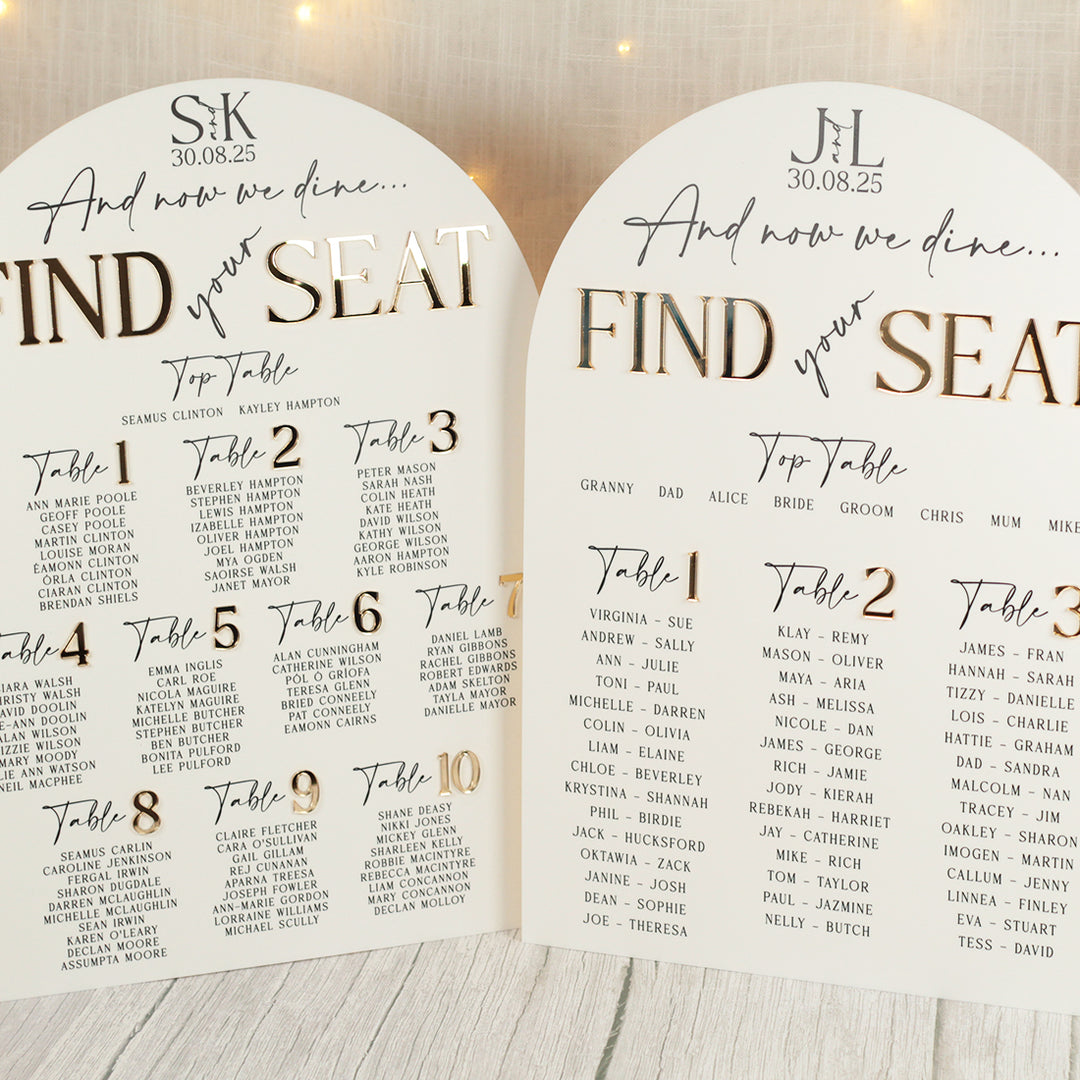 S and K
30.08.25
And now we dine...
FIND your SEAT
Top Table
SEAMUS CLINTON KAYLEY HAMPTON
Table 1
ANN MARIE POOLE
GEOFF POOLE
CASEY POOLE
MARTIN CLINTON
LOUISE MORAN
ÉAMONN CLINTON
ÓRLA CLINTON
CIARAN CLINTON
BRENDAN SHIELS
Table 2
BEVERLEY HAMPTON
STEPHEN HAMPTON
LEWIS HAMPTON
IZABELLE HAMPTON
OLIVER HAMPTON
JOEL HAMPTON
MYA OGDEN
SAOIRSE WALSH
JANET MAYOR
Table 3
PETER MASON
SARAH NASH
COLIN HEATH
KATE HEATH
DAVID WILSON
KATHY WILSON
GEORGE WILSON
AARON HAMPTON
KYLE ROBINSON
Table 4
WALSH
WALSH
DOOLIN
DOOLIN
WILSON
WILSON
MARY MOODY
ANN WATSON
NEIL MACPHEE
Table 5
EMMA INGLIS
CARL ROE
NICOLA MAGUIRE
KATELYN MAGUIRE
MICHELLE BUTCHER
STEPHEN BUTCHER
BEN BUTCHER
BONITA PULFORD
LEE PULFORD
Table 6
ALAN CUNNINGHAM
CATHERINE WILSON
PÓL Ó GRÍOFA
TERESA GLENN
BRIED CONNEELY
PAT CONNEELY
EAMONN CAIRNS
Table 7
DANIEL LAMB
RYAN GIBBONS
RACHEL GIBBONS
ROBERT EDWARDS
ADAM SKELTON
TAYLA MAYOR
DANIELLE MAYOR
Table 8
SEAMUS CARLIN
CAROLINE JENKINSON
FERGAL IRWIN
SHARON DUGDALE
DARREN MCLAUGHLIN
MICHELLE MCLAUGHLIN
SEAN IRWIN
KAREN O'LEARY
DECLAN MOORE
ASSUMPTA MOORE
Table 9
CLAIRE FLETCHER
CARA O'SULLIVAN
GAIL GILLAM
REJ CUNANAN
APARNA TREESA
JOSEPH FOWLER
ANN-MARIE GORDON
LORRAINE WILLIAMS
MICHAEL SCULLY
Table 10
SHANE DEASY
NIKKI JONES
MICKEY GLENN
SHARLEEN KELLY
ROBBIE MACINTYRE
REBECCA MACINTYRE
LIAM CONCANNON
MARY CONCANNON
DECLAN MOLLOY
J and L
30.08.25
And now we dine...
FIND your SEAT
Top Table
GRANNY DAD ALICE BRIDE GROOM CHRIS MUM MIKE
Table 1
VIRGINIA – SUE
ANDREW – SALLY
ANN – JULIE
TONI – PAUL
MICHELLE – DARREN
COLIN – OLIVIA
LIAM – ELAINE
CHLOE – BEVERLEY
KRYSTINA – SHANNAH
PHIL – BIRDIE
JACK – HUCKSFORD
OKTAWIA – ZACK
JANINE – JOSH
DEAN – SOPHIE
JOE – THERESA
Table 2
KLAY – REMY
MASON – OLIVER
MAYA – ARIA
ASH – MELISSA
NICOLE – DAN
JAMES – GEORGE
RICH – JAMIE
JODY – KIERAH
REBEKAH – HARRIET
JAY – CATHERINE
MIKE – RICH
TOM – TAYLOR
PAUL – JAZMINE
NELLY – BUTCH
Table 3
JAMES – FRAN
HANNAH – SARAH
TIZZY – DANIELLE
LOIS – CHARLIE
HATTIE – GRAHAM
DAD – SANDRA
MALCOLM – NAN
TRACEY – JIM
OAKLEY – SHARON
IMOGEN – MARTIN
CALLUM – JENNY
LINNEA – FINLEY
EVA – STUART
TESS – DAVID